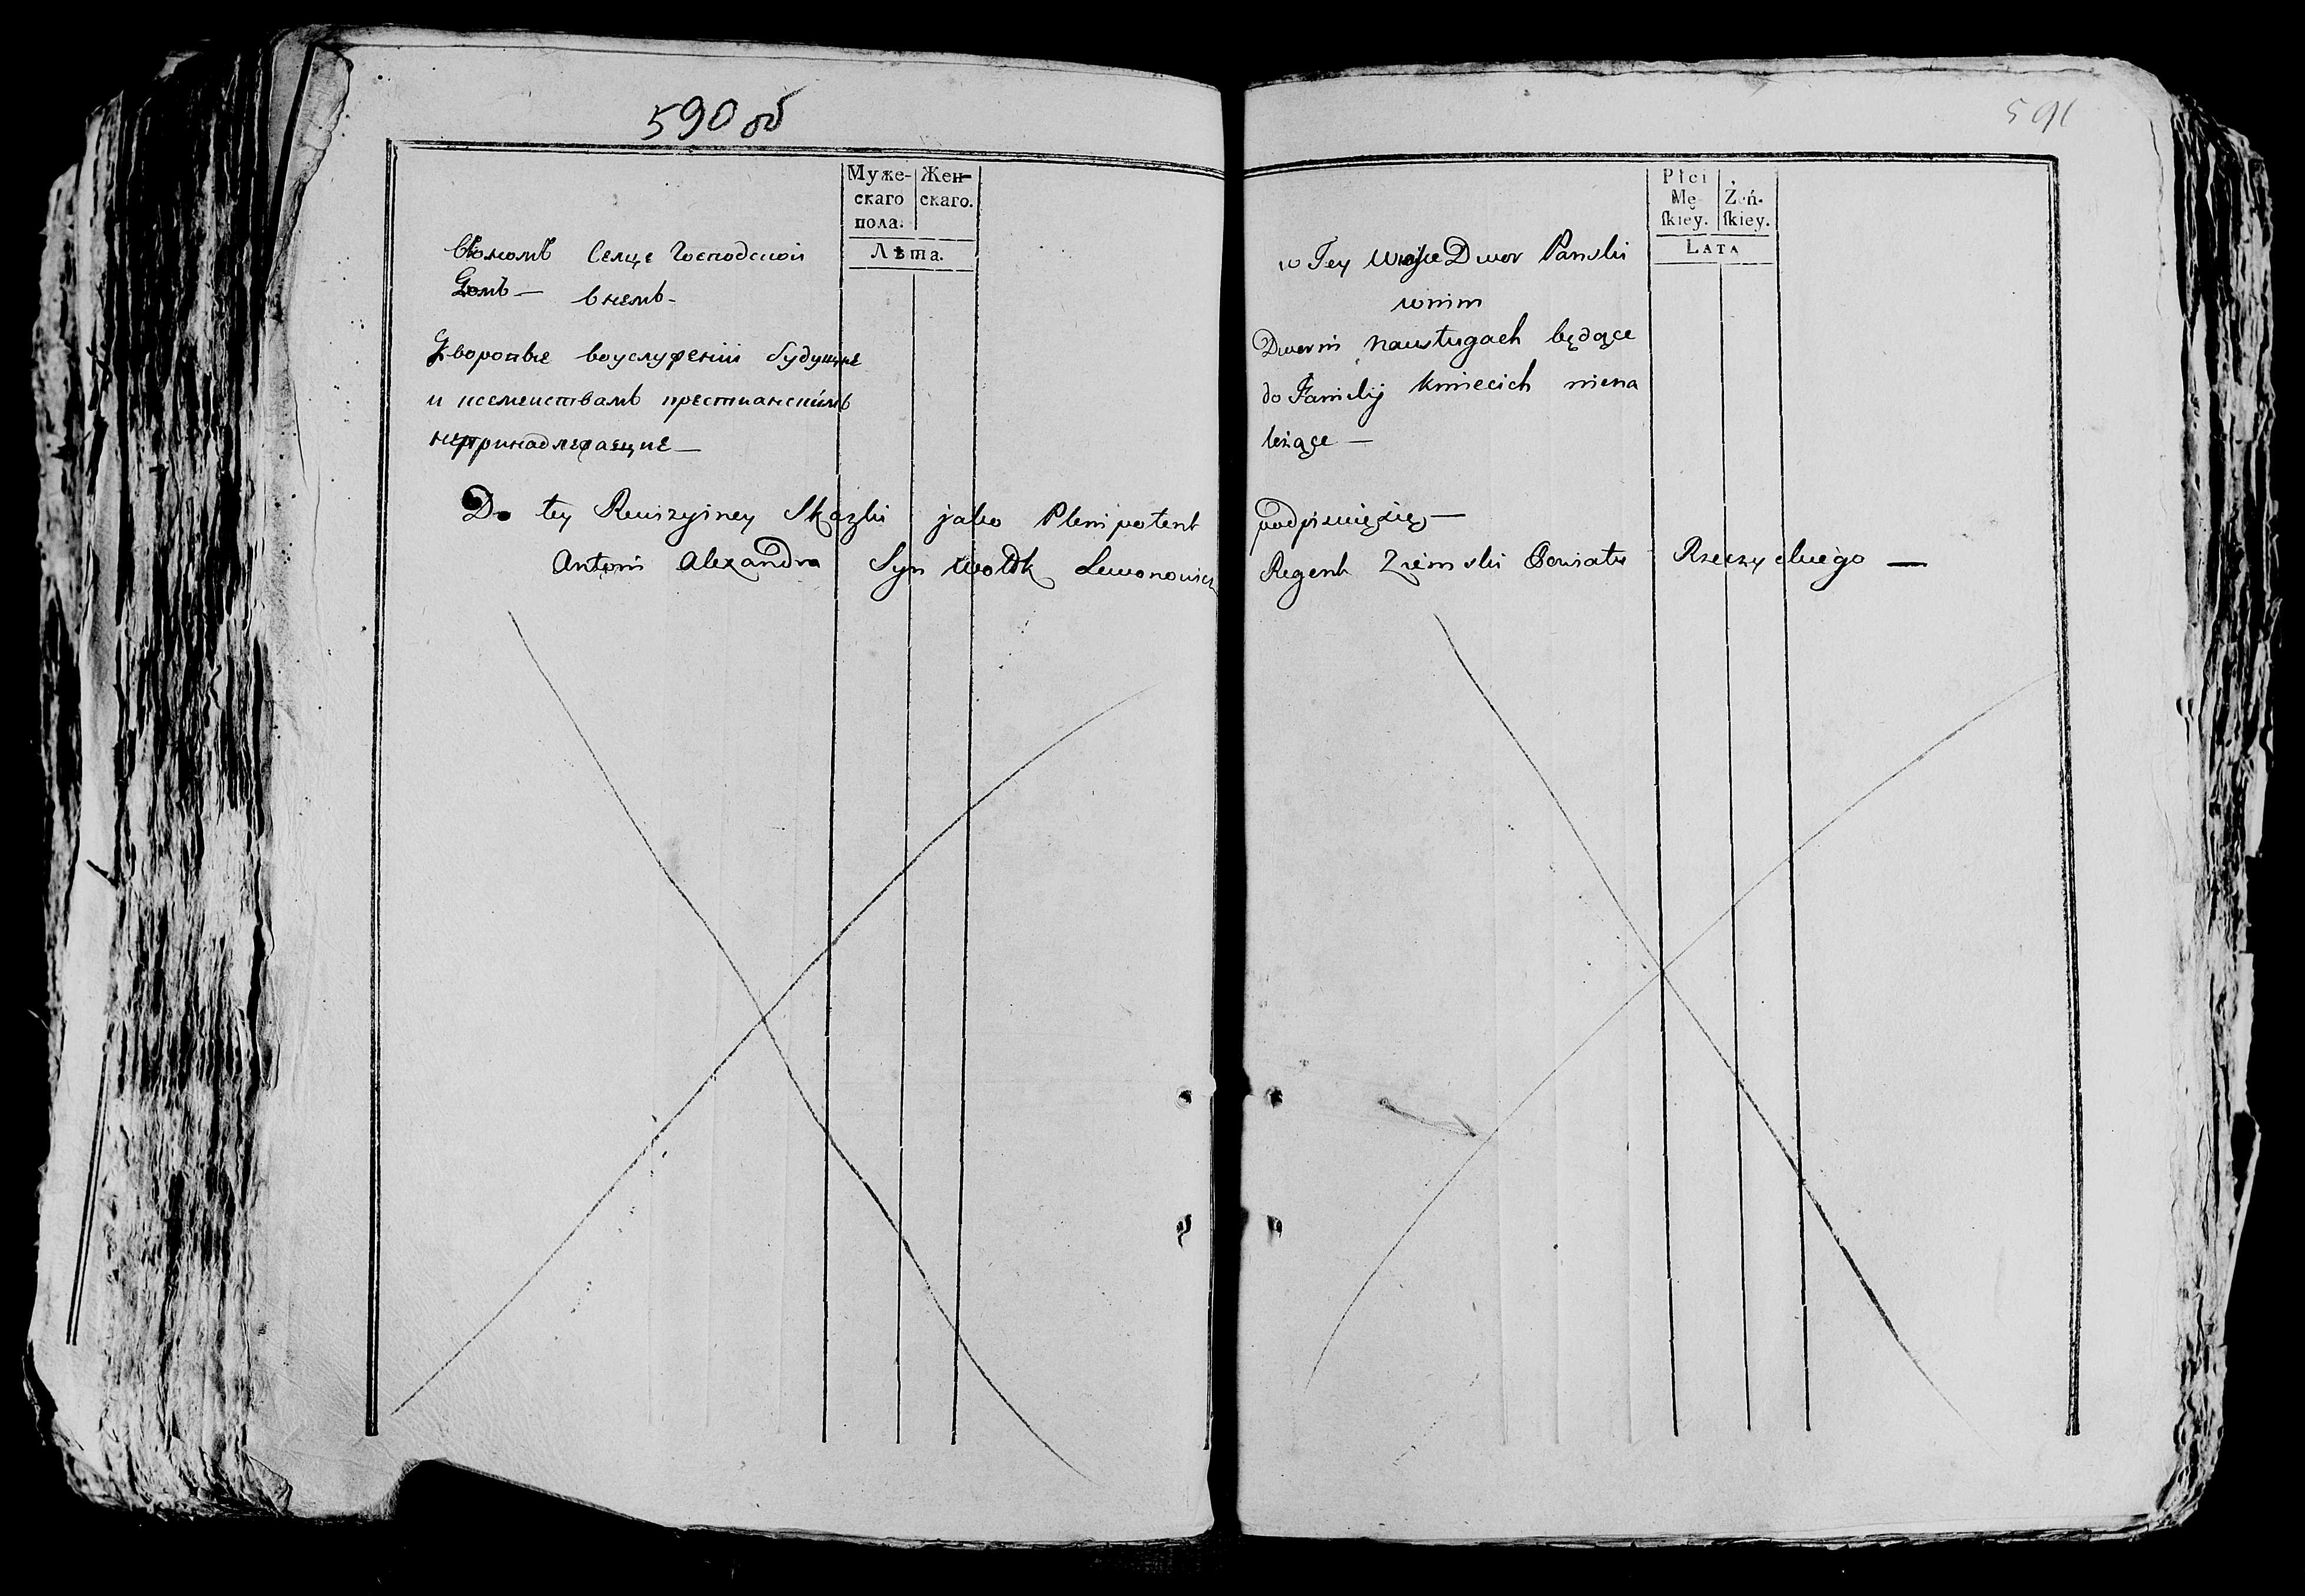 590 об
Муже- Жен-
скаго скаго.
пола.
Лѣта.
Селце Господской
Домъ — внемъ -
Дворовые воуслужении будущие
и ксемеиствамъ крестианскимъ
непринадлежащие —
Do tey Rewizyiney Skazki jako Plenipotent
Antoni Alexandra Syn Wołdk Lewonowicz
591
Płci
Mę- Żeń-
ſkiey. ſkiey.
LATA
w Tey Dwor Panski
wnim
Dworni nausługach będące
do Familij kmiecich niena
leżące —
podpisuięsię —
Regent Ziemski Powiatu Rzeczyckiego —